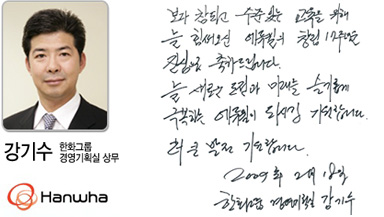 보다 참되고 수준있는 교육을 위해
늘 힘써오신 에듀윌의 창립 17주년을
진심으로 축하드립니다.
늘 새로운 도전과 미래를 슬기롭게
극복하는 에듀윌이 되시길 기원합니다.
더 큰 발전 기도합니다.
2009年 2月 18日
한화그룹 경영기획실 강기수
강기수 한화그룹
경영기획실 상무
Hanwha